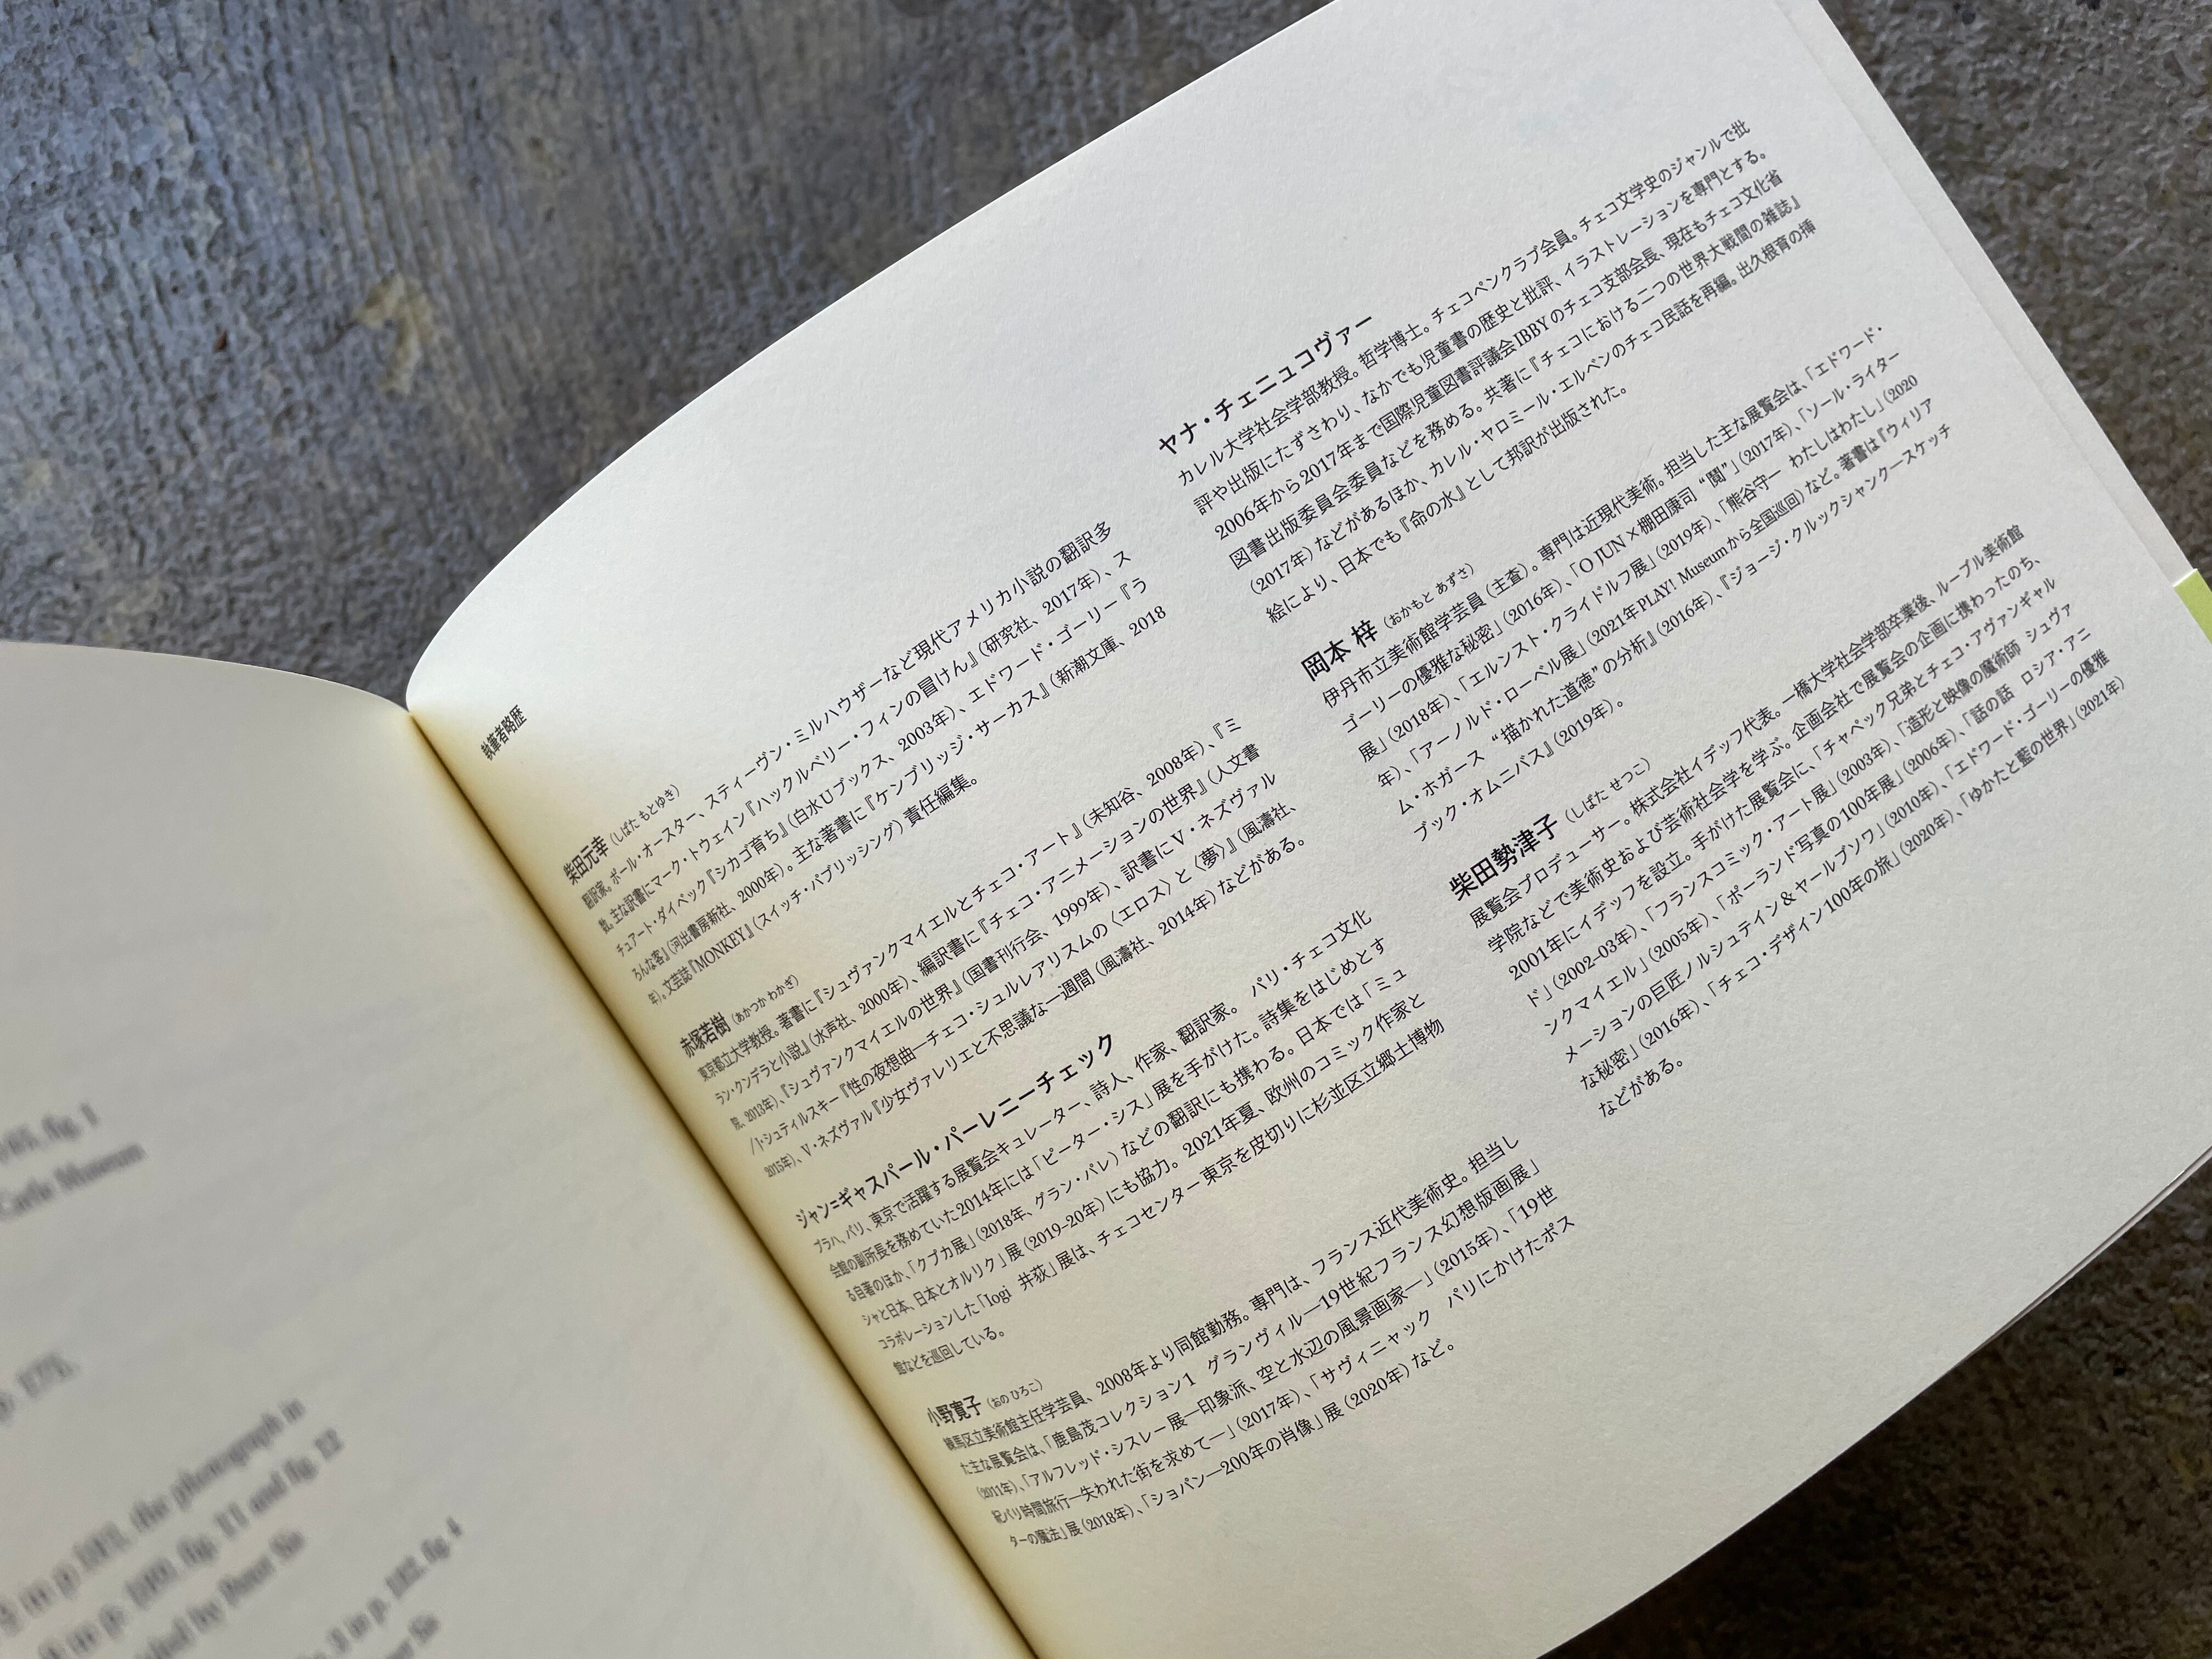 85, fig. 1
Carle Museum
p. 175,
in p 181, the photograph in
in p. 180, fig. 11 and fig. 12
by Peter Sís
3 in p. 182, fig. 4
執筆者略歴
柴田元幸(しばた もとゆき)
翻訳家。ポール・オースター、スティーヴン・ミルハウザーなど現代アメリカ小説の翻訳多
数。主な訳書にマーク・トウェイン『ハックルベリー・フィンの冒けん』(研究社、2017年)、ス
チュアート・ダイベック『シカゴ育ち』(白水Uブックス、2003年)、エドワード・ゴーリー『う
ろんな客』(河出書房新社、2000年)。主な著書に『ケンブリッジ・サーカス』(新潮文庫、2018
年)。文芸誌『MONKEY』(スイッチ・パブリッシング)責任編集。
赤塚若樹(あかつか わかぎ)
東京都立大学教授。著書に『シュヴァンクマイエルとチェコ・アート』(未知谷、2008年)、『ミ
ラン・クンデラと小説』(水声社、2000年)、編訳書に『チェコ・アニメーションの世界』(人文書
院、2013年)、『シュヴァンクマイエルの世界』(国書刊行会、1999年)、訳書にV・ネズヴァル
/J・シュティルスキー『性の夜想曲―チェコ・シュルレアリスムの〈エロス〉と〈夢〉』(風濤社、
2015年)、V・ネズヴァル『少女ヴァレリエと不思議な一週間』(風濤社、2014年)などがある。
ジャン=ギャスパール・パーレニーチェック
プラハ、パリ、東京で活躍する展覧会キュレーター、詩人、作家、翻訳家。 パリ・チェコ文化
会館の副所長を務めていた2014年には「ピーター・シス」展を手がけた。詩集をはじめとす
る自著のほか、「クプカ展」(2018年、グラン・パレ)などの翻訳にも携わる。日本では「ミュ
シャと日本、日本とオルリク」展(2019–20年)にも協力。2021年夏、欧州のコミック作家と
コラボレーションした「Iogi 井荻」展は、チェコセンター東京を皮切りに杉並区立郷土博物
館などを巡回している。
小野寛子(おの ひろこ)
練馬区立美術館主任学芸員、2008年より同館勤務。専門は、フランス近代美術史。担当し
た主な展覧会は、「鹿島茂コレクション1 グランヴィル―19世紀フランス幻想版画展」
(2011年)、「アルフレッド・シスレー展―印象派、空と水辺の風景画家―」(2015年)、「19世
紀パリ時間旅行―失われた街を求めて―」(2017年)、「サヴィニャック パリにかけたポス
ターの魔法」展(2018年)、「ショパン―200年の肖像」展(2020年)など。
ヤナ・チェニュコヴァー
カレル大学社会学部教授。哲学博士。チェコペンクラブ会員。チェコ文学史のジャンルで批
評や出版にたずさわり、なかでも児童書の歴史と批評、イラストレーションを専門とする。
2006年から2017年まで国際児童図書評議会IBBYのチェコ支部会長、現在もチェコ文化省
図書出版委員会委員などを務める。共著に『チェコにおける二つの世界大戦間の雑誌』
(2017年)などがあるほか、カレル・ヤロミール・エルベンのチェコ民話を再編。出久根育の挿
絵により、日本でも『命の水』として邦訳が出版された。
岡本 梓(おかもと あずさ)
伊丹市立美術館学芸員(主査)。専門は近現代美術。担当した主な展覧会は、「エドワード・
ゴーリーの優雅な秘密」(2016年)、「O JUN×棚田康司 “鬩”」(2017年)、「ソール・ライター
展」(2018年)、「エルンスト・クライドルフ展」(2019年)、「熊谷守一 わたしはわたし」(2020
年)、「アーノルド・ローベル展」(2021年PLAY! Museumから全国巡回)など。著書は『ウィリア
ム・ホガース “描かれた道徳”の分析』(2016年)、『ジョージ・クルックシャンク―スケッチ
ブック・オムニバス』(2019年)。
柴田勢津子(しばた せつこ)
展覧会プロデューサー。株式会社イデッフ代表。一橋大学社会学部卒業後、ルーブル美術館
学院などで美術史および芸術社会学を学ぶ。企画会社で展覧会の企画に携わったのち、
2001年にイデッフを設立。手がけた展覧会に、「チャペック兄弟とチェコ・アヴァンギャル
ド」(2002–03年)、「フランスコミック・アート展」(2003年)、「造形と映像の魔術師 シュヴァ
ンクマイエル」(2005年)、「ポーランド写真の100年展」(2006年)、「話の話 ロシア・アニ
メーションの巨匠ノルシュテイン&ヤールブソワ」(2010年)、「エドワード・ゴーリーの優雅
な秘密」(2016年)、「チェコ・デザイン100年の旅」(2020年)、「ゆかたと藍の世界」(2021年)
などがある。